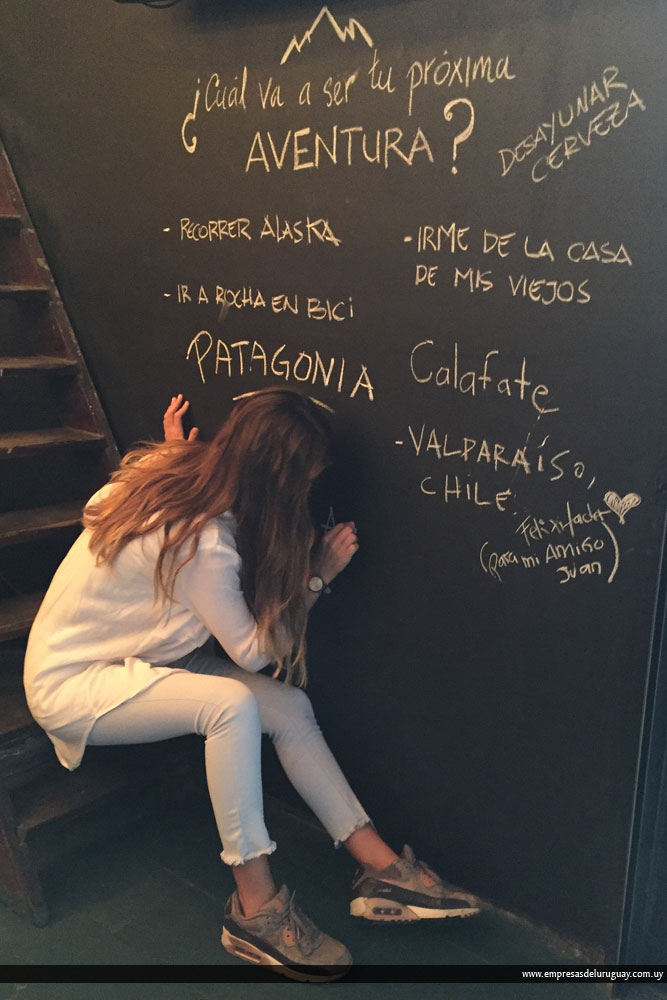 ¿Cuál va a ser tu próxima
AVENTURA?
DESAYUNAR
CERVEZA
- RECORRER ALASKA
- IR A ROCHA EN BICI
PATAGONIA
- IRME DE LA CASA
DE MIS VIEJOS
Calafate
- VALPARAÍSO,
CHILE
(para mi AMIGO
Juan)
www.empresasdeluruguay.com.uy